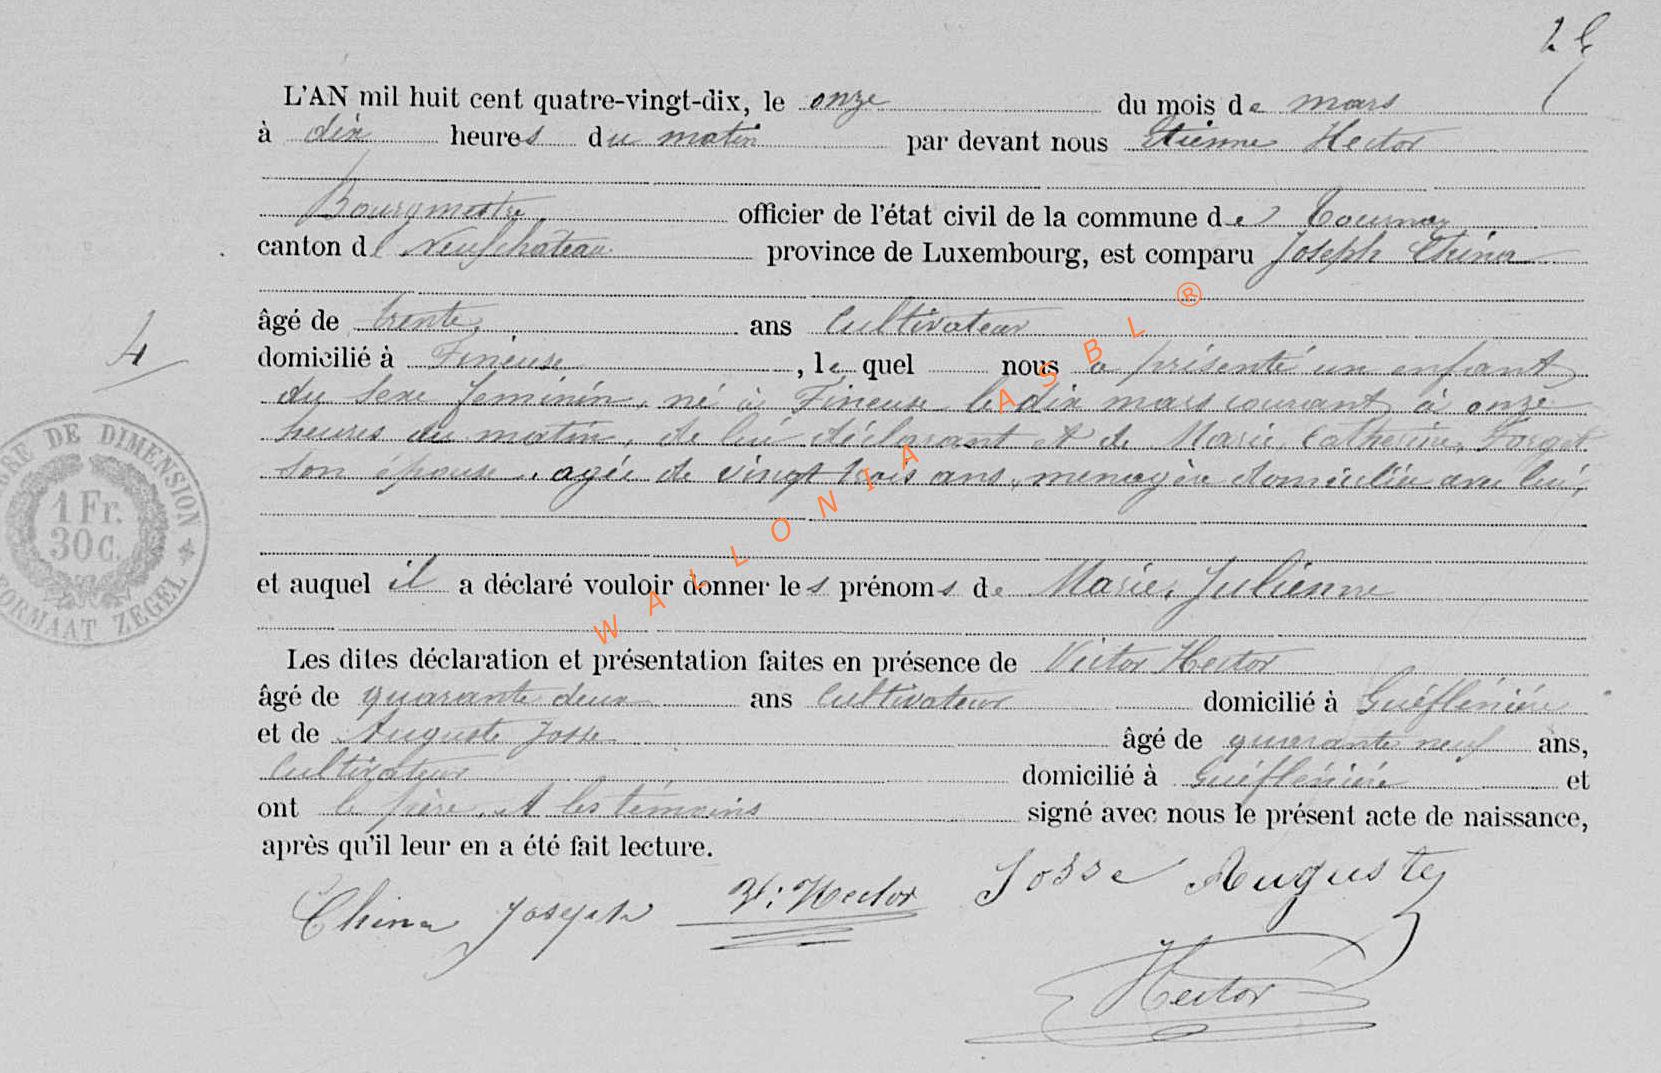 L'AN mil huit cent quatre-vingt-dix, le onze du mois de mars
à dix heures du matin par devant nous Etienne Hector
Bourgmestre officier de l'état civil de la commune de Tournay
canton de Neufchâteau province de Luxembourg, est comparu Joseph China
âgé de trente ans Cultivateur
4
domicilié à Fineuse, le quel nous a présenté un enfant
du sexe féminin, né à Fineuse le dix mars courant à onze
heures du matin, de lui déclarant et de Marie, Catherine,
son épouse, agée de vingt trois ans, menagère domiciliée avec lui,
TIMBRE DE DIMENSION
1 Fr.
30 C.
FORMAAT ZEGEL
et auquel il a déclaré vouloir donner les prénoms de Marie, Julienne
Les dites déclaration et présentation faites en présence de Victor Hector
âgé de quarante deux ans Cultivateur domicilié à
et de Auguste Josse âgé de quarante neuf ans,
Cultivateur domicilié à et
ont le père et les témoins signé avec nous le présent acte de naissance,
après qu'il leur en a été fait lecture.
China Joseph V: Hector Josse Auguste
Hector
WALLONIA ASBL ®